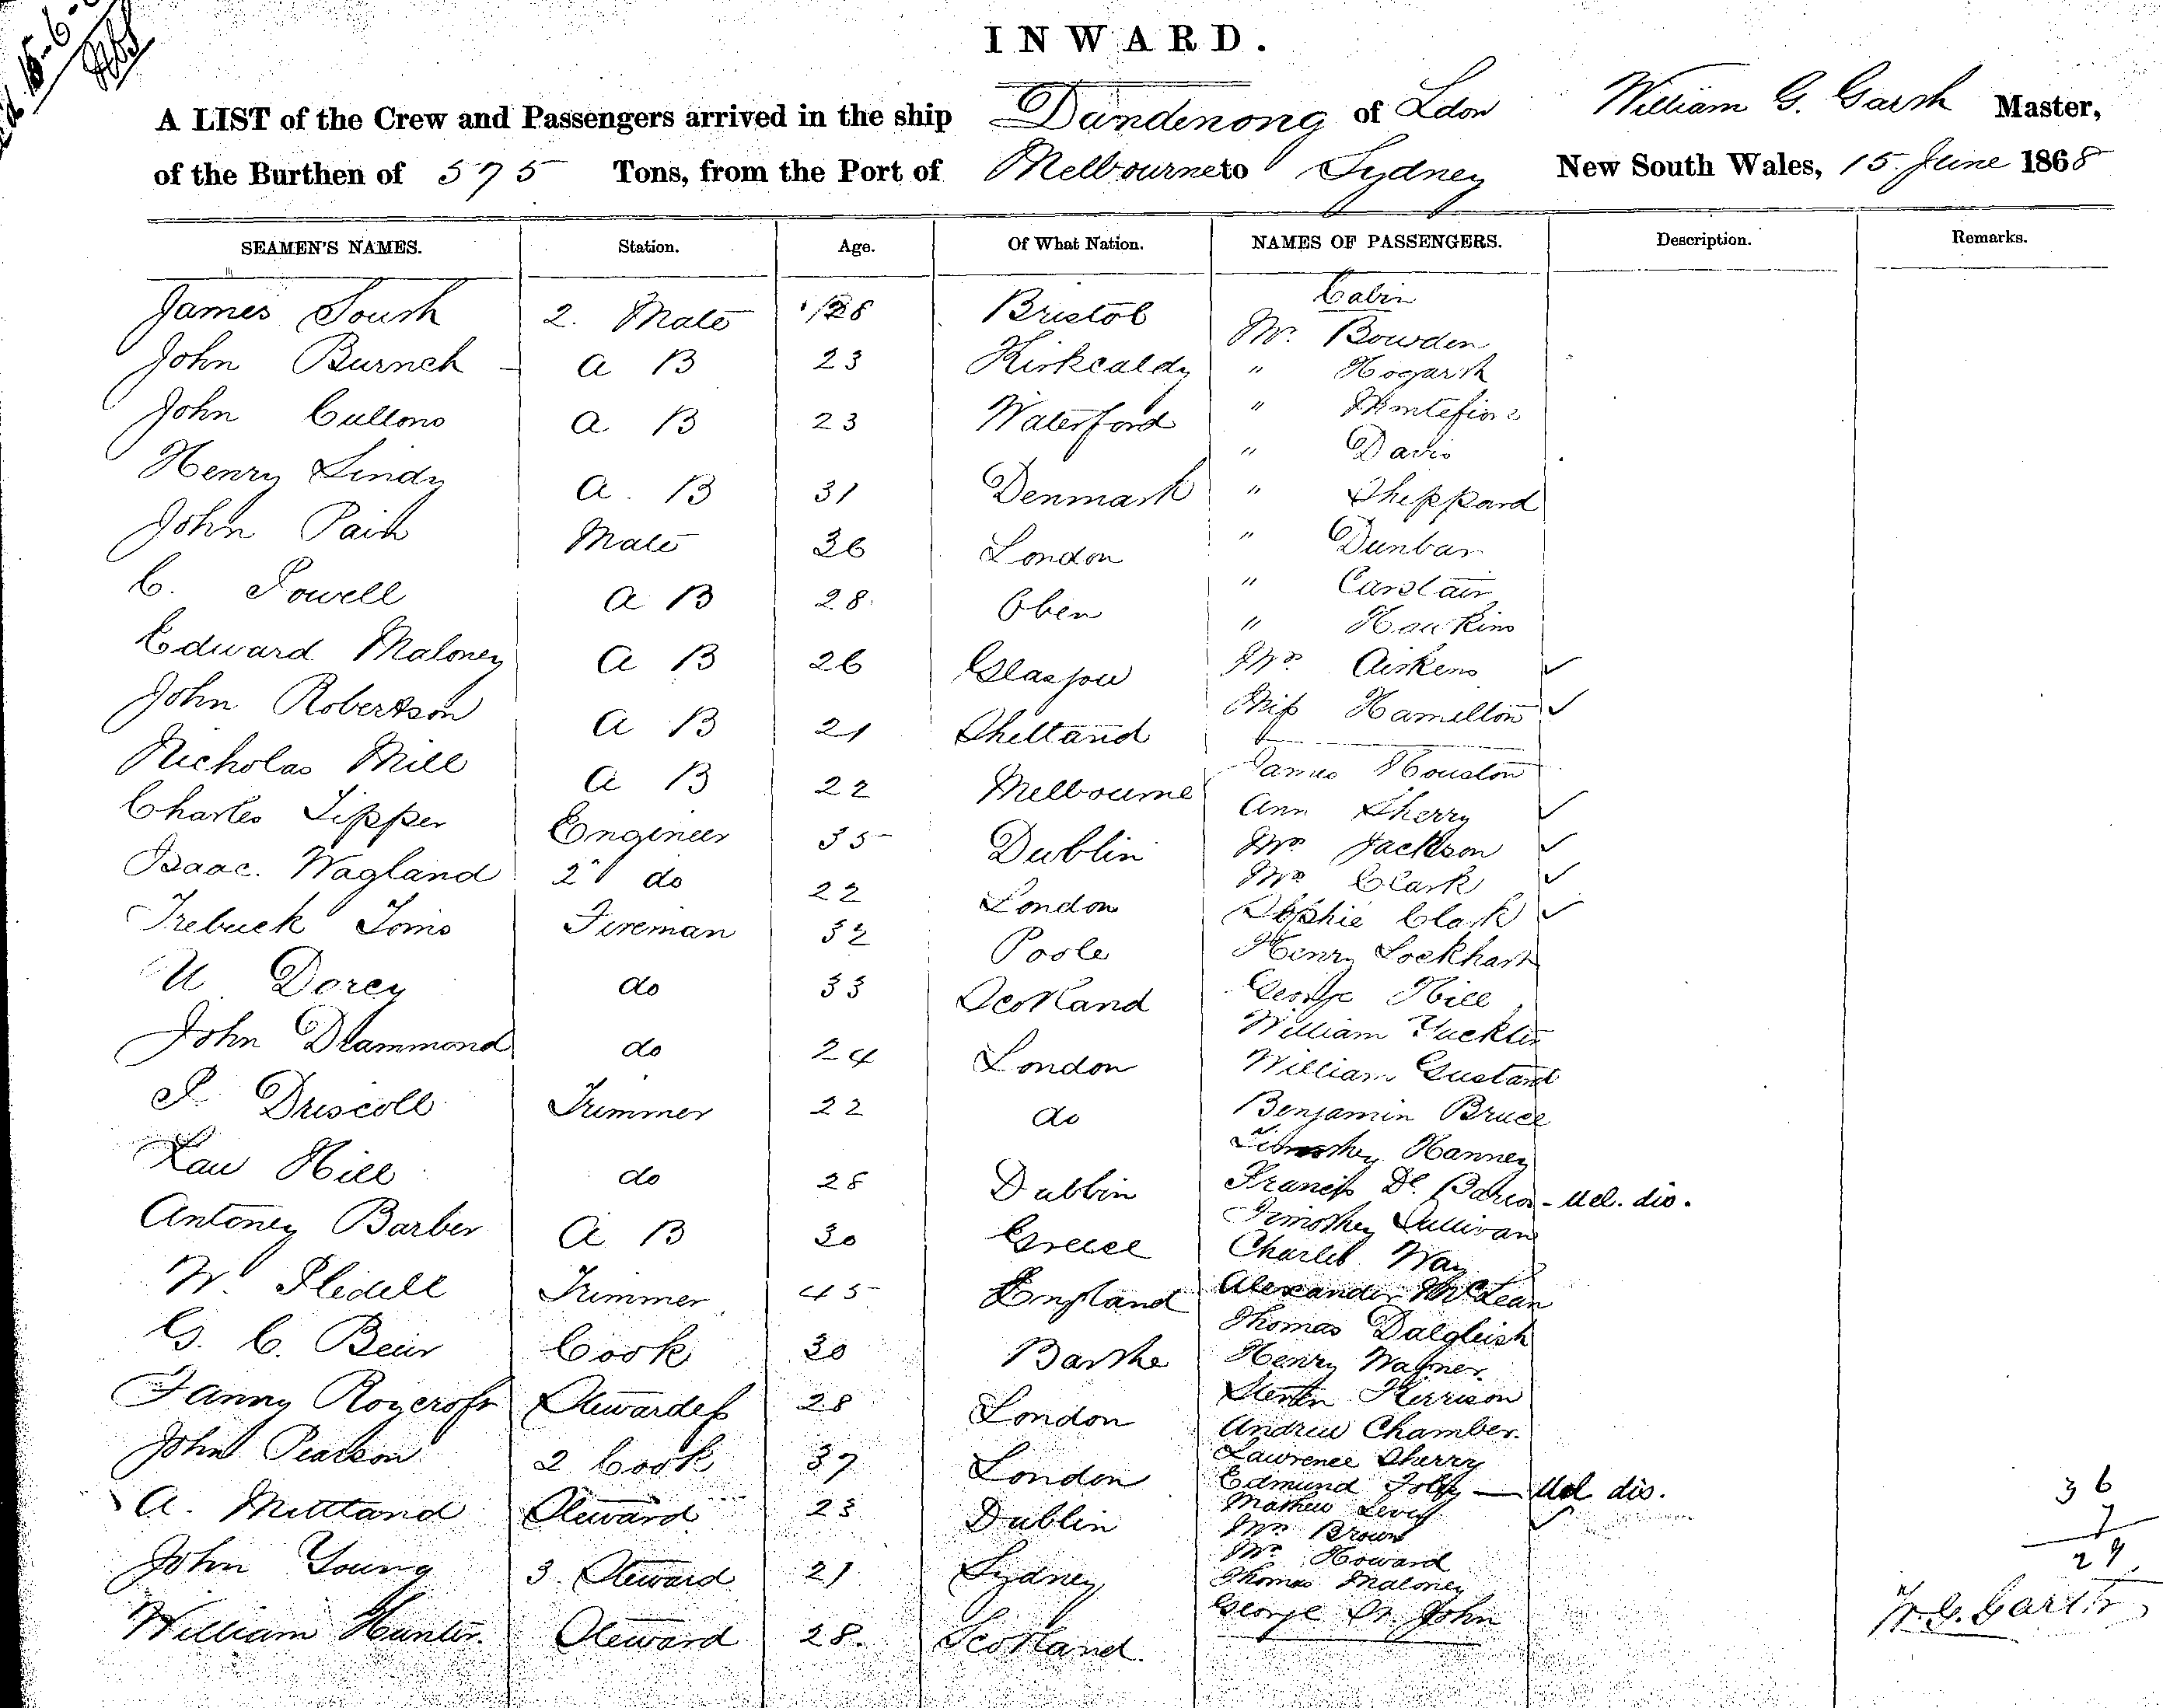 INWARD.
A LIST of the Crew and Passengers arrived in the ship Dandenong of Ldon William G. Garth Master,
of the Burthen of 575 Tons, from the Port of Melbourne to Sydney New South Wales, 15 June 1868
SEAMEN'S NAMES. Station. Age. Of What Nation. NAMES OF PASSENGERS. Description. Remarks.
James South 2. Mate 28 Bristol
John Burneh A B 23 Kirkcaldy
John Cullono A B 23 Waterford
Henry Lindy A. B 31 Denmark
John Pain Mate 36 London
C. Powell A B 28. Oben
Edward Maloney A B 26 Glasgow
John Robertson A B 21 Shetland
Nicholas Mill A B 22 Melbourne
Charles Tipper Engineer 35 Dublin
Isaac. Wagland 2 do 22 London
Trebuck Toms Fireman 32 Poole
U Dorey do 33 Scotland
John Drammond do 24 London
P. Driscoll Trimmer 22 do
Law Hill do 28 Dublin
Antoney Barber A B 30 Greece
W. Slidell Trimmer 45 England
G. C. Beur Cook 30
Fanny Roycroft Stewardess 28 London
John Pearson 2 Cook 37 London
A. Mettland Steward 23 Dublin
John Young 3 Steward 21 Sydney
William Hunter. Steward 28. Scotland.
Cabin
Mr. Bowden
" Hogarth
" Montefiore
" Davis
" Sheppard
" Dunbar
" Carstair
" Hawkins
Mrs Aitkens ✓
Miss Hamelton ✓
James Houston
Ann Sherry ✓
Mrs Jackson ✓
Mrs Clark ✓
Sophie Clark ✓
Henry Lockhart
George Hill
William Tucklin
William Gustard
Benjamin Bruce
Timothey Hanney
Francis De Barros - Ucl. dis.
Timothey Sullivan
Charles Way
Alexander McLean
Thomas Dalgleish
Henry Wagner.
Kerrison
Andrew Chamber.
Lawrence Sherry
Edmund — Ucl dis.
Mathew Levey
Mrs Brown ✓
Mr. Howard
Thomas Maloney
George St John
36
7
29
W. G. Garth